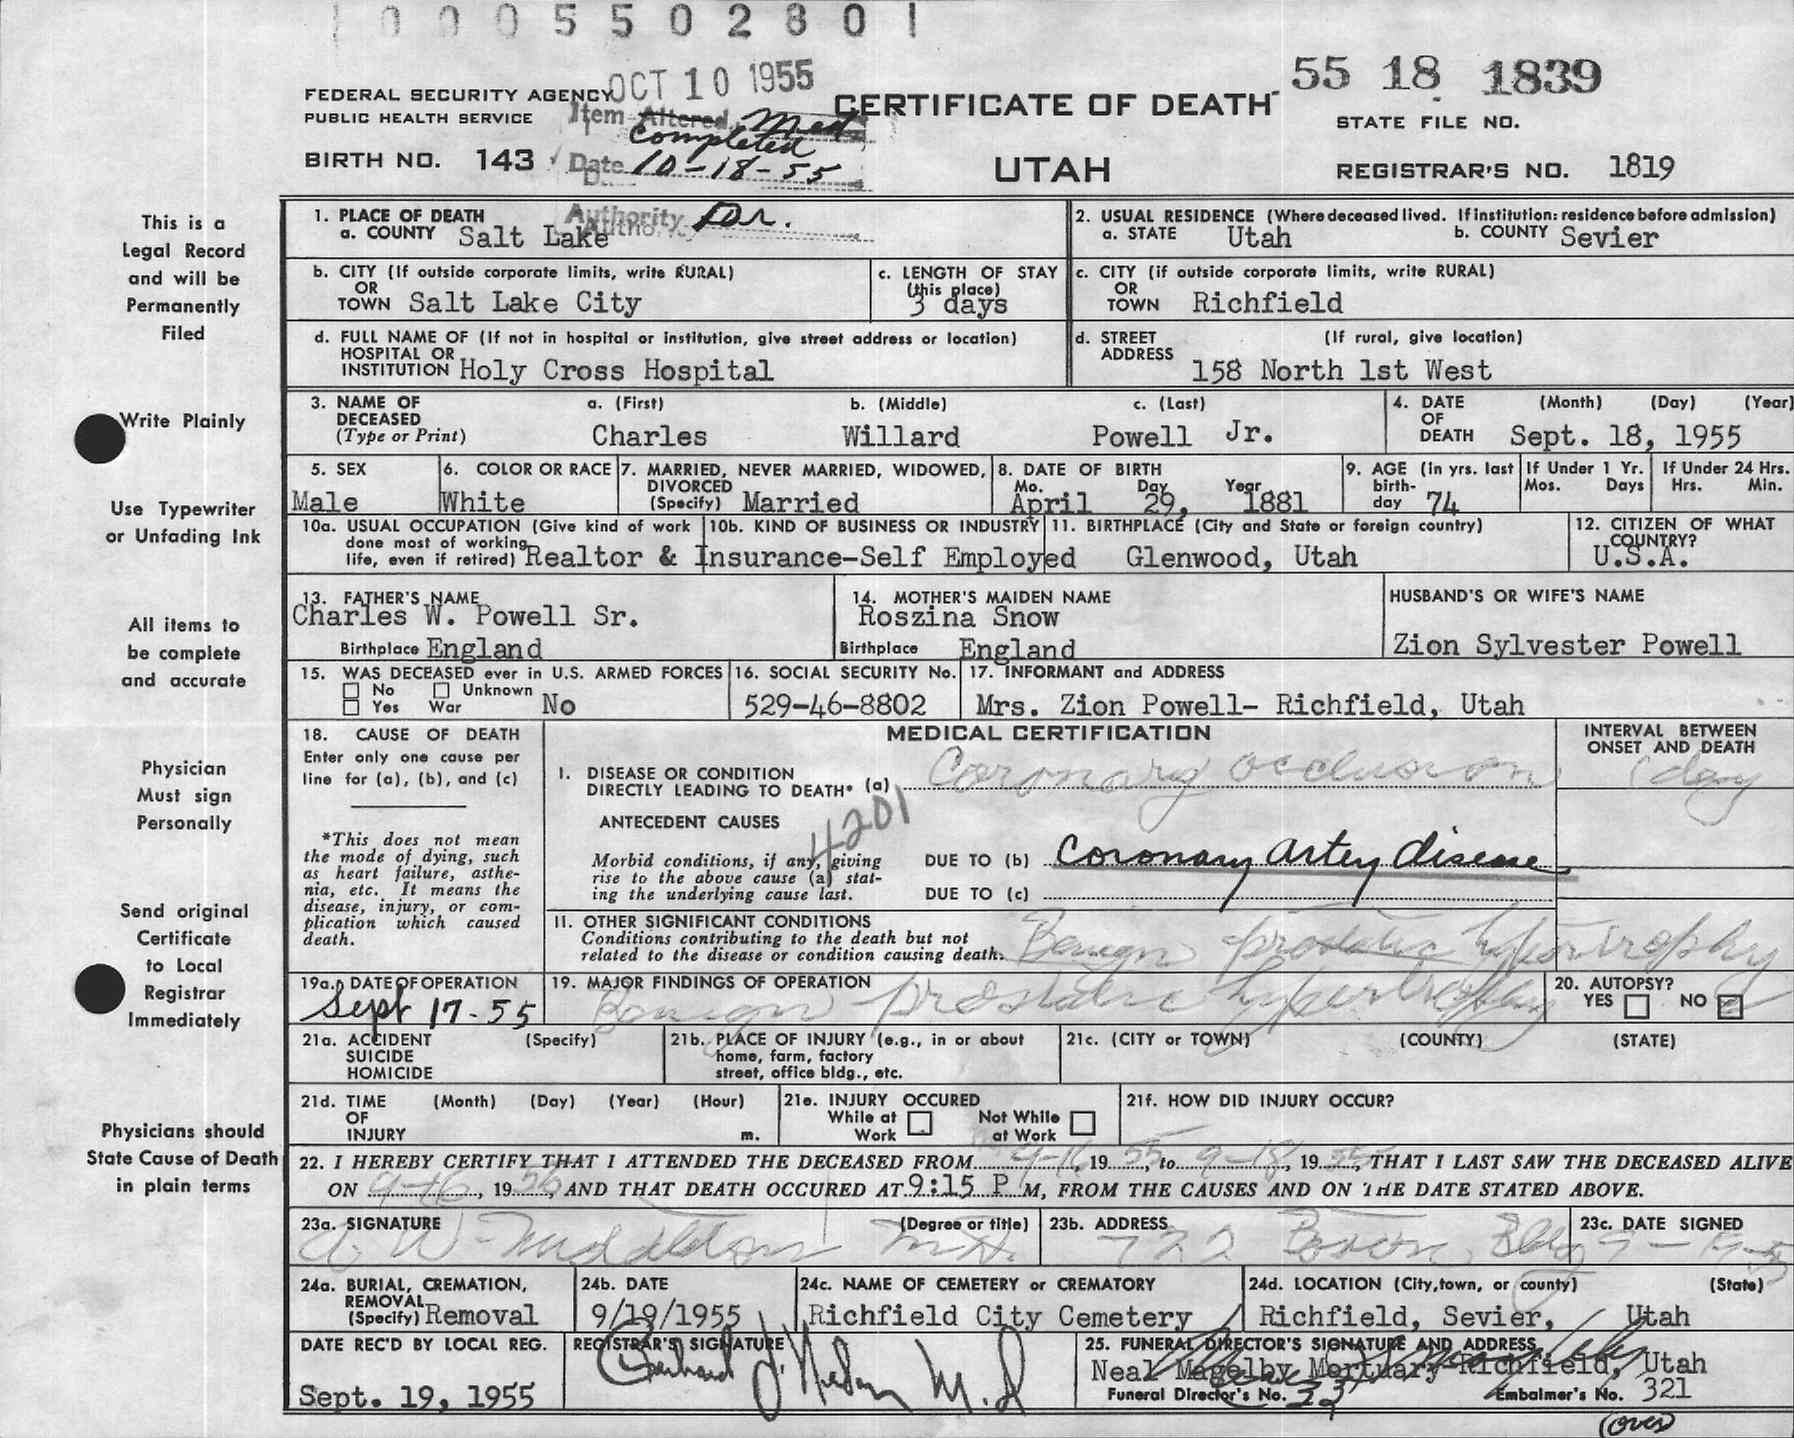 1 0 0 0 5 5 0 2 8 0 1
OCT 10 1955
55 18 1839
FEDERAL SECURITY AGENCY
PUBLIC HEALTH SERVICE
Item Altered Med
completed
CERTIFICATE OF DEATH
STATE FILE NO.
BIRTH NO. 143
Date 10-18-55
UTAH
REGISTRAR'S NO. 1819
Authority Dr.
This is a
Legal Record
and will be
Permanently
Filed
1. PLACE OF DEATH
a. COUNTY Salt Lake
2. USUAL RESIDENCE (Where deceased lived. If institution: residence before admission)
a. STATE Utah b. COUNTY Sevier
b. CITY (If outside corporate limits, write RURAL)
OR
TOWN Salt Lake City
c. LENGTH OF STAY
(this place)
3 days
c. CITY (if outside corporate limits, write RURAL)
OR
TOWN Richfield
d. FULL NAME OF (If not in hospital or institution, give street address or location)
HOSPITAL OR
INSTITUTION Holy Cross Hospital
d. STREET (If rural, give location)
ADDRESS
158 North 1st West
Write Plainly
3. NAME OF a. (First) b. (Middle) c. (Last)
DECEASED
(Type or Print) Charles Willard Powell Jr.
4. DATE (Month) (Day) (Year)
OF
DEATH Sept. 18, 1955
Use Typewriter
or Unfading Ink
5. SEX
Male
6. COLOR OR RACE
White
7. MARRIED, NEVER MARRIED, WIDOWED,
DIVORCED
(Specify) Married
8. DATE OF BIRTH
Mo. Day Year
April 29, 1881
9. AGE (in yrs. last
birth-
day 74
If Under 1 Yr.
Mos. Days
If Under 24 Hrs.
Hrs. Min.
10a. USUAL OCCUPATION (Give kind of work
done most of working
life, even if retired) Realtor &
10b. KIND OF BUSINESS OR INDUSTRY
Insurance-Self Employed
11. BIRTHPLACE (City and State or foreign country)
Glenwood, Utah
12. CITIZEN OF WHAT
COUNTRY?
U.S.A.
All items to
be complete
and accurate
13. FATHER'S NAME
Charles W. Powell Sr.
Birthplace England
14. MOTHER'S MAIDEN NAME
Roszina Snow
Birthplace England
HUSBAND'S OR WIFE'S NAME
Zion Sylvester Powell
15. WAS DECEASED ever in U.S. ARMED FORCES
No Unknown
Yes War No
16. SOCIAL SECURITY No.
529-46-8802
17. INFORMANT and ADDRESS
Mrs. Zion Powell- Richfield, Utah
Physician
Must sign
Personally
18. CAUSE OF DEATH
Enter only one cause per
line for (a), (b), and (c)
*This does not mean
the mode of dying, such
as heart failure, asthe-
nia, etc. It means the
disease, injury, or com-
plication which caused
death.
MEDICAL CERTIFICATION
INTERVAL BETWEEN
ONSET AND DEATH
I. DISEASE OR CONDITION
DIRECTLY LEADING TO DEATH* (a) Coronary occlusion
1 day
4201
ANTECEDENT CAUSES
Morbid conditions, if any, giving
rise to the above cause (a) stat-
ing the underlying cause last.
DUE TO (b) Coronary artery disease
DUE TO (c)
Send original
Certificate
to Local
Registrar
Immediately
II. OTHER SIGNIFICANT CONDITIONS
Conditions contributing to the death but not
related to the disease or condition causing death. Benign prostatic hypertrophy
19a. DATE OF OPERATION
Sept 17-55
19. MAJOR FINDINGS OF OPERATION
Benign prostatic hypertrophy
20. AUTOPSY?
YES NO
21a. ACCIDENT (Specify)
SUICIDE
HOMICIDE
21b. PLACE OF INJURY (e.g., in or about
home, farm, factory
street, office bldg., etc.
21c. (CITY or TOWN) (COUNTY) (STATE)
21d. TIME (Month) (Day) (Year) (Hour)
OF
INJURY m.
21e. INJURY OCCURED
While at Work
Not While at Work
21f. HOW DID INJURY OCCUR?
Physicians should
State Cause of Death
in plain terms
22. I HEREBY CERTIFY THAT I ATTENDED THE DECEASED FROM 9-16, 1955, to 9-18, 1955, THAT I LAST SAW THE DECEASED ALIVE
ON 9-16, 19 AND THAT DEATH OCCURED AT 9:15 P M, FROM THE CAUSES AND ON THE DATE STATED ABOVE.
23a. SIGNATURE (Degree or title)
A W Middleton M.D.
23b. ADDRESS
722 Boston Bldg
23c. DATE SIGNED
9-19-55
24a. BURIAL, CREMATION,
REMOVAL
(Specify) Removal
24b. DATE
9/19/1955
24c. NAME OF CEMETERY or CREMATORY
Richfield City Cemetery
24d. LOCATION (City, town, or county) (State)
Richfield, Sevier, Utah
DATE REC'D BY LOCAL REG.
Sept. 19, 1955
REGISTRAR'S SIGNATURE
M.D
25. FUNERAL DIRECTOR'S SIGNATURE AND ADDRESS
Neal Magelby Mortuary Richfield, Utah
Funeral Director's No. Embalmer's No. 321
(over)